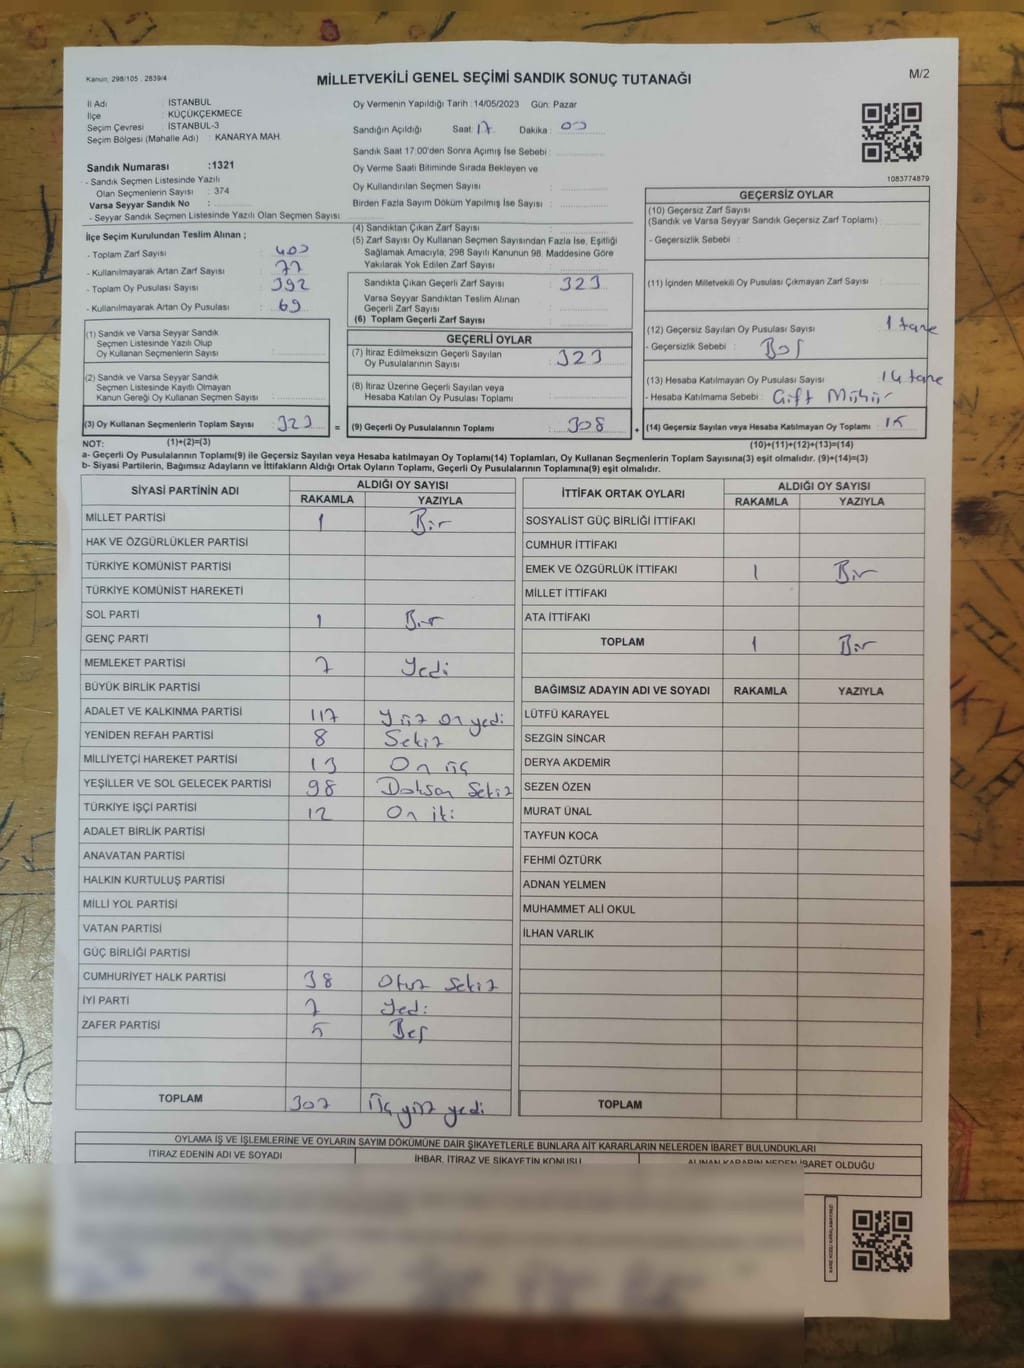 Kanun, 298/105 , 2839/4
MİLLETVEKİLİ GENEL SEÇİMİ SANDIK SONUÇ TUTANAĞI
M/2
İl Adı : İSTANBUL
İlçe : KÜÇÜKÇEKMECE
Seçim Çevresi : İSTANBUL-3
Seçim Bölgesi (Mahalle Adı) : KANARYA MAH.
Sandık Numarası :1321
- Sandık Seçmen Listesinde Yazılı
Olan Seçmenlerin Sayısı : 374
Varsa Seyyar Sandık No :
- Seyyar Sandık Seçmen Listesinde Yazılı Olan Seçmen Sayısı :
İlçe Seçim Kurulundan Teslim Alınan ;
- Toplam Zarf Sayısı : 400
- Kullanılmayarak Artan Zarf Sayısı : 77
- Toplam Oy Pusulası Sayısı : 392
- Kullanılmayarak Artan Oy Pusulası : 69
(1) Sandık ve Varsa Seyyar Sandık
Seçmen Listesinde Yazılı Olup
Oy Kullanan Seçmenlerin Sayısı :
(2) Sandık ve Varsa Seyyar Sandık
Seçmen Listesinde Kayıtlı Olmayan
Kanun Gereği Oy Kullanan Seçmen Sayısı :
(3) Oy Kullanan Seçmenlerin Toplam Sayısı : 323 =
Oy Vermenin Yapıldığı Tarih :14/05/2023 Gün: Pazar
Sandığın Açıldığı Saat: 17 Dakika : 00
Sandık Saat 17:00'den Sonra Açımış İse Sebebi :
Oy Verme Saati Bitiminde Sırada Bekleyen ve
Oy Kullandırılan Seçmen Sayısı :
Birden Fazla Sayım Döküm Yapılmış İse Sayısı :
(4) Sandıktan Çıkan Zarf Sayısı :
(5) Zarf Sayısı Oy Kullanan Seçmen Sayısından Fazla İse, Eşitliği
Sağlamak Amacıyla, 298 Sayılı Kanunun 98. Maddesine Göre
Yakılarak Yok Edilen Zarf Sayısı :
Sandıkta Çıkan Geçerli Zarf Sayısı : 323
Varsa Seyyar Sandıktan Teslim Alınan
Geçerli Zarf Sayısı :
(6) Toplam Geçerli Zarf Sayısı :
GEÇERLİ OYLAR
(7) İtiraz Edilmeksizin Geçerli Sayılan
Oy Pusulalarının Sayısı : 323
(8) İtiraz Üzerine Geçerli Sayılan veya
Hesaba Katılan Oy Pusulası Toplamı :
(9) Geçerli Oy Pusulalarının Toplamı : 308 +
1083774879
GEÇERSİZ OYLAR
(10) Geçersiz Zarf Sayısı
(Sandık ve Varsa Seyyar Sandık Geçersiz Zarf Toplamı) :
- Geçersizlik Sebebi :
(11) İçinden Milletvekili Oy Pusulası Çıkmayan Zarf Sayısı :
(12) Geçersiz Sayılan Oy Pusulası Sayısı : 1 tane
- Geçersizlik Sebebi : Boş
(13) Hesaba Katılmayan Oy Pusulası Sayısı : 14 tane
- Hesaba Katılmama Sebebi : Çift Mühür
(14) Geçersiz Sayılan veya Hesaba Katılmayan Oy Toplamı : 15
NOT: (1)+(2)=(3) (10)+(11)+(12)+(13)=(14)
a- Geçerli Oy Pusulalarının Toplamı(9) ile Geçersiz Sayılan veya Hesaba katılmayan Oy Toplamı(14) Toplamları, Oy Kullanan Seçmenlerin Toplam Sayısına(3) eşit olmalıdır. (9)+(14)=(3)
b- Siyasi Partilerin, Bağımsız Adayların ve İttifakların Aldığı Ortak Oyların Toplamı, Geçerli Oy Pusulalarının Toplamına(9) eşit olmalıdır.
SİYASİ PARTİNİN ADI ALDIĞI OY SAYISI
RAKAMLA YAZIYLA
MİLLET PARTİSİ 1 Bir
HAK VE ÖZGÜRLÜKLER PARTİSİ
TÜRKİYE KOMÜNİST PARTİSİ
TÜRKİYE KOMÜNİST HAREKETİ
SOL PARTİ 1 Bir
GENÇ PARTİ
MEMLEKET PARTİSİ 7 Yedi
BÜYÜK BİRLİK PARTİSİ
ADALET VE KALKINMA PARTİSİ 117 Yüz on yedi
YENİDEN REFAH PARTİSİ 8 Sekiz
MİLLİYETÇİ HAREKET PARTİSİ 13 On üç
YEŞİLLER VE SOL GELECEK PARTİSİ 98 Doksan Sekiz
TÜRKİYE İŞÇİ PARTİSİ 12 On iki
ADALET BİRLİK PARTİSİ
ANAVATAN PARTİSİ
HALKIN KURTULUŞ PARTİSİ
MİLLİ YOL PARTİSİ
VATAN PARTİSİ
GÜÇ BİRLİĞİ PARTİSİ
CUMHURİYET HALK PARTİSİ 38 Otuz Sekiz
İYİ PARTİ 7 Yedi
ZAFER PARTİSİ 5 Beş
TOPLAM 307 Üç yüz yedi
İTTİFAK ORTAK OYLARI ALDIĞI OY SAYISI
RAKAMLA YAZIYLA
SOSYALİST GÜÇ BİRLİĞİ İTTİFAKI
CUMHUR İTTİFAKI
EMEK VE ÖZGÜRLÜK İTTİFAKI 1 Bir
MİLLET İTTİFAKI
ATA İTTİFAKI
TOPLAM 1 Bir
BAĞIMSIZ ADAYIN ADI VE SOYADI RAKAMLA YAZIYLA
LÜTFÜ KARAYEL
SEZGİN SİNCAR
DERYA AKDEMİR
SEZEN ÖZEN
MURAT ÜNAL
TAYFUN KOCA
FEHMİ ÖZTÜRK
ADNAN YELMEN
MUHAMMET ALİ OKUL
İLHAN VARLIK
TOPLAM
OYLAMA İŞ VE İŞLEMLERİNE VE OYLARIN SAYIM DÖKÜMÜNE DAİR ŞİKAYETLERLE BUNLARA AİT KARARLARIN NELERDEN İBARET BULUNDUKLARI
İTİRAZ EDENİN ADI VE SOYADI İHBAR, İTİRAZ VE ŞİKAYETİN KONUSU ALINAN KARARIN NEDEN İBARET OLDUĞU